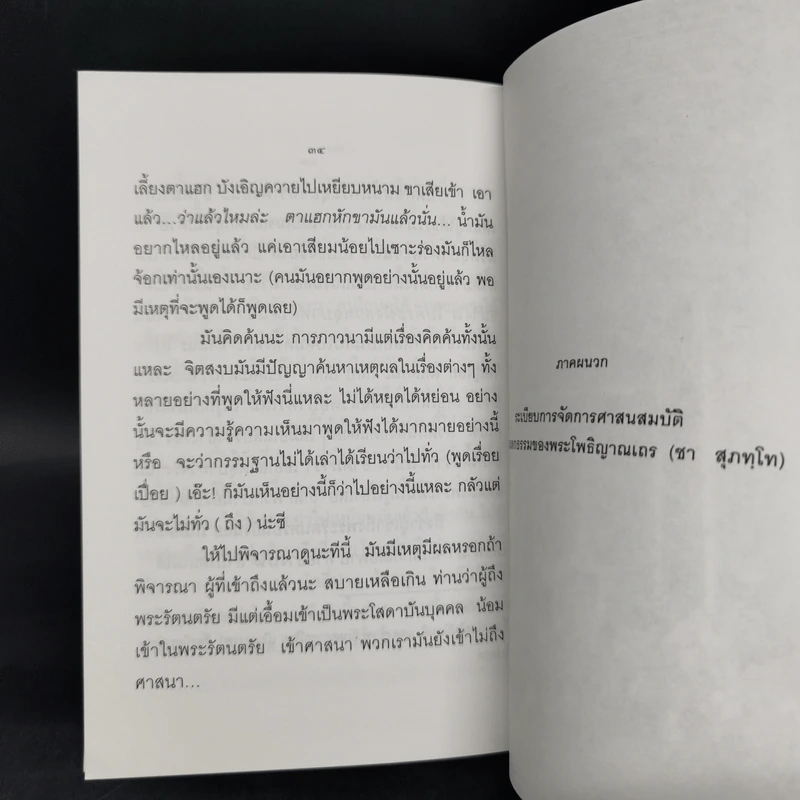 ๓๔
เลี้ยงตาแฮก บังเอิญควายไปเหยียบหนาม ขาเสียเข้า เอา
แล้ว...ว่าแล้วไหมล่ะ ตาแฮกหักขามันแล้วนั่น... น้ำมัน
อยากไหลอยู่แล้ว แค่เอาเสียมน้อยไปเซาะร่องมันก็ไหล
จ้อกเท่านั้นเองเนาะ (คนมันอยากพูดอย่างนั้นอยู่แล้ว พอ
มีเหตุที่จะพูดได้ก็พูดเลย)
มันคิดค้นนะ การภาวนามีแต่เรื่องคิดค้นทั้งนั้น
แหละ จิตสงบมันมีปัญญาค้นหาเหตุผลในเรื่องต่างๆ ทั้ง
หลายอย่างที่พูดให้ฟังนี่แหละ ไม่ได้หยุดได้หย่อน อย่าง
นั้นจะมีความรู้ความเห็นมาพูดให้ฟังได้มากมายอย่างนี้
หรือ จะว่ากรรมฐานไม่ได้เล่าได้เรียนว่าไปทั่ว (พูดเรื่อย
เปื่อย ) เอ๊ะ! ก็มันเห็นอย่างนี้ก็ว่าไปอย่างนี้แหละ กลัวแต่
มันจะไม่ทั่ว ( ถึง ) น่ะซี
ให้ไปพิจารณาดูนะทีนี้ มันมีเหตุมีผลหรอกถ้า
พิจารณา ผู้ที่เข้าถึงแล้วนะ สบายเหลือเกิน ท่านว่าผู้ถึง
พระรัตนตรัย มีแต่เอื้อมเข้าเป็นพระโสดาบันบุคคล น้อม
เข้าในพระรัตนตรัย เข้าศาสนา พวกเรามันยังเข้าไม่ถึง
ศาสนา...
ภาคผนวก
ระเบียบการจัดการศาสนสมบัติ
ของพระโพธิญาณเถร (ชา สุภทฺโท)